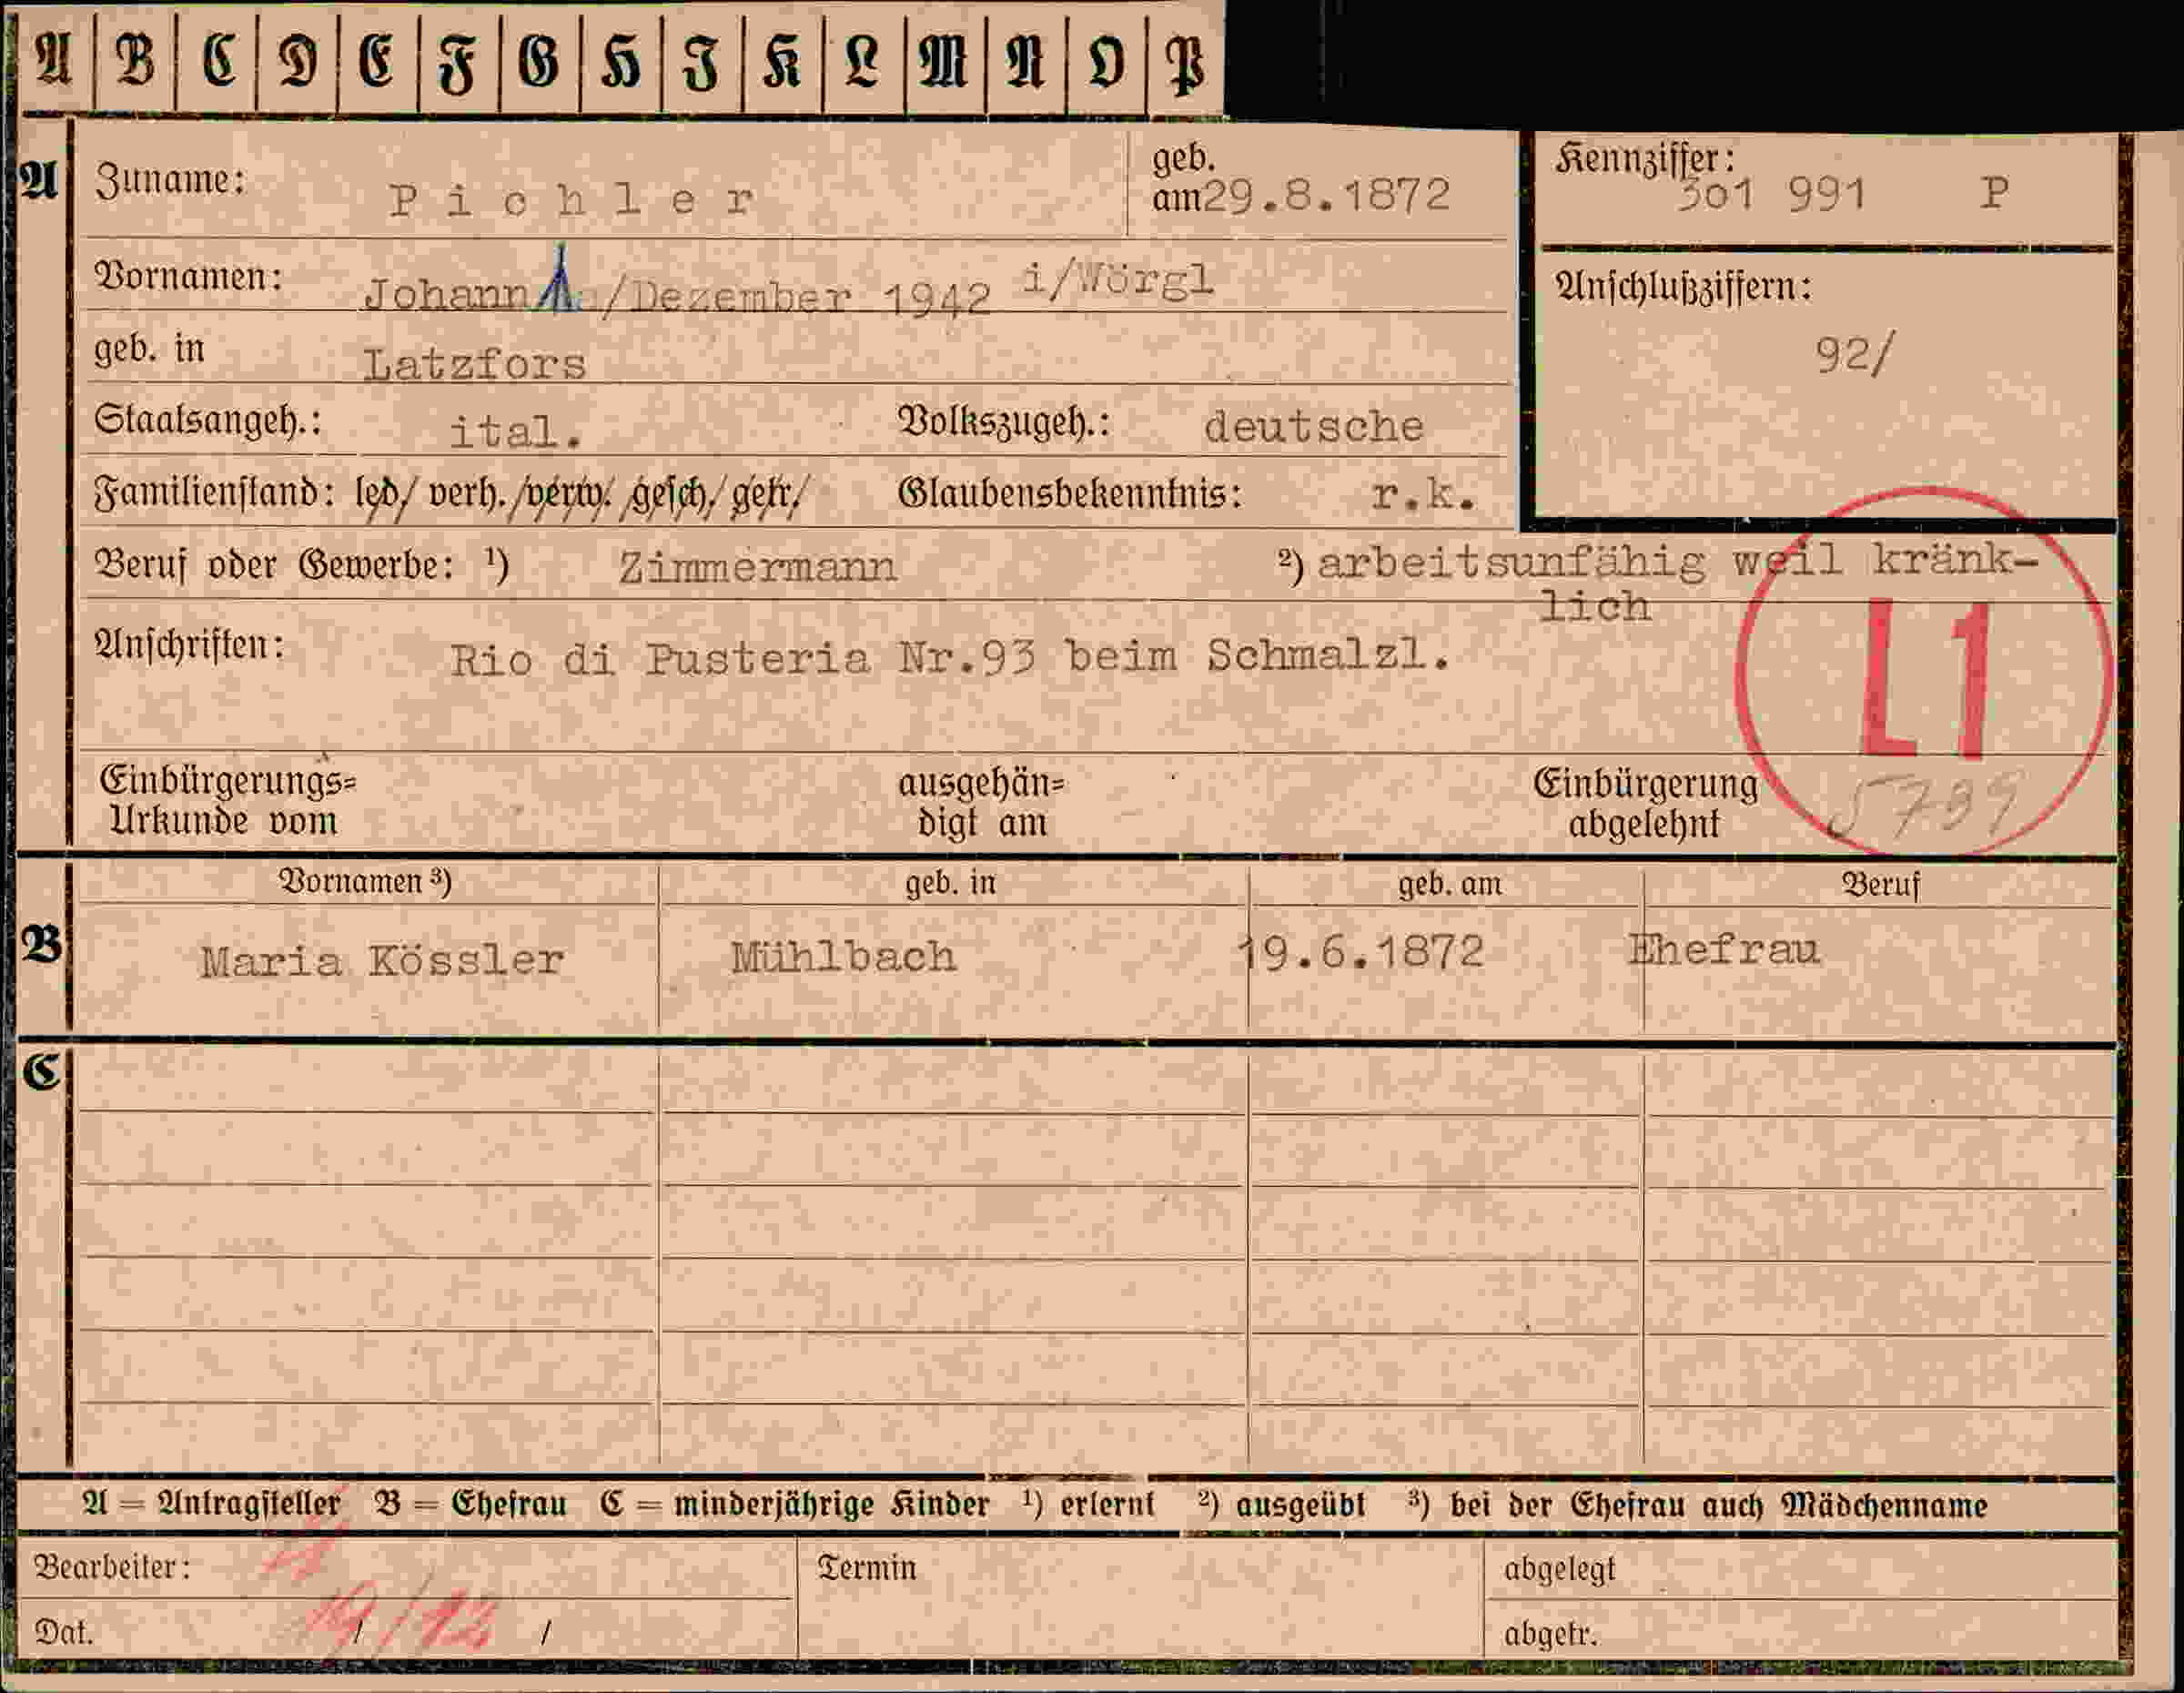 A B C D E F G H I K L M N O P
A Zuname: Pichler geb. am 29.8.1872 Kennziffer: 301 991 P
Vornamen: Johann /Dezember 1942 i/Wörgl
Anschlußziffern: 92/
geb. in Latzfors
Staatsangeh.: ital. Volkszugeh.: deutsche
Familienstand: led/ verh./verw./gesch./getr./ Glaubensbekenntnis: r.k.
Beruf oder Gewerbe: ¹) Zimmermann ²) arbeitsunfähig weil kränk-
lich
Anschriften: Rio di Pusteria Nr.93 beim Schmalzl.
L1
Einbürgerungs= ausgehän= Einbürgerung
Urkunde vom digt am abgelehnt
Vornamen ³) geb. in geb. am Beruf
B Maria Kössler Mühlbach 19.6.1872 Ehefrau
C
A = Antragsteller B = Ehefrau C = minderjährige Kinder ¹) erlernt ²) ausgeübt ³) bei der Ehefrau auch Mädchenname
Bearbeiter: Termin abgelegt
Dat. / / abgetr.